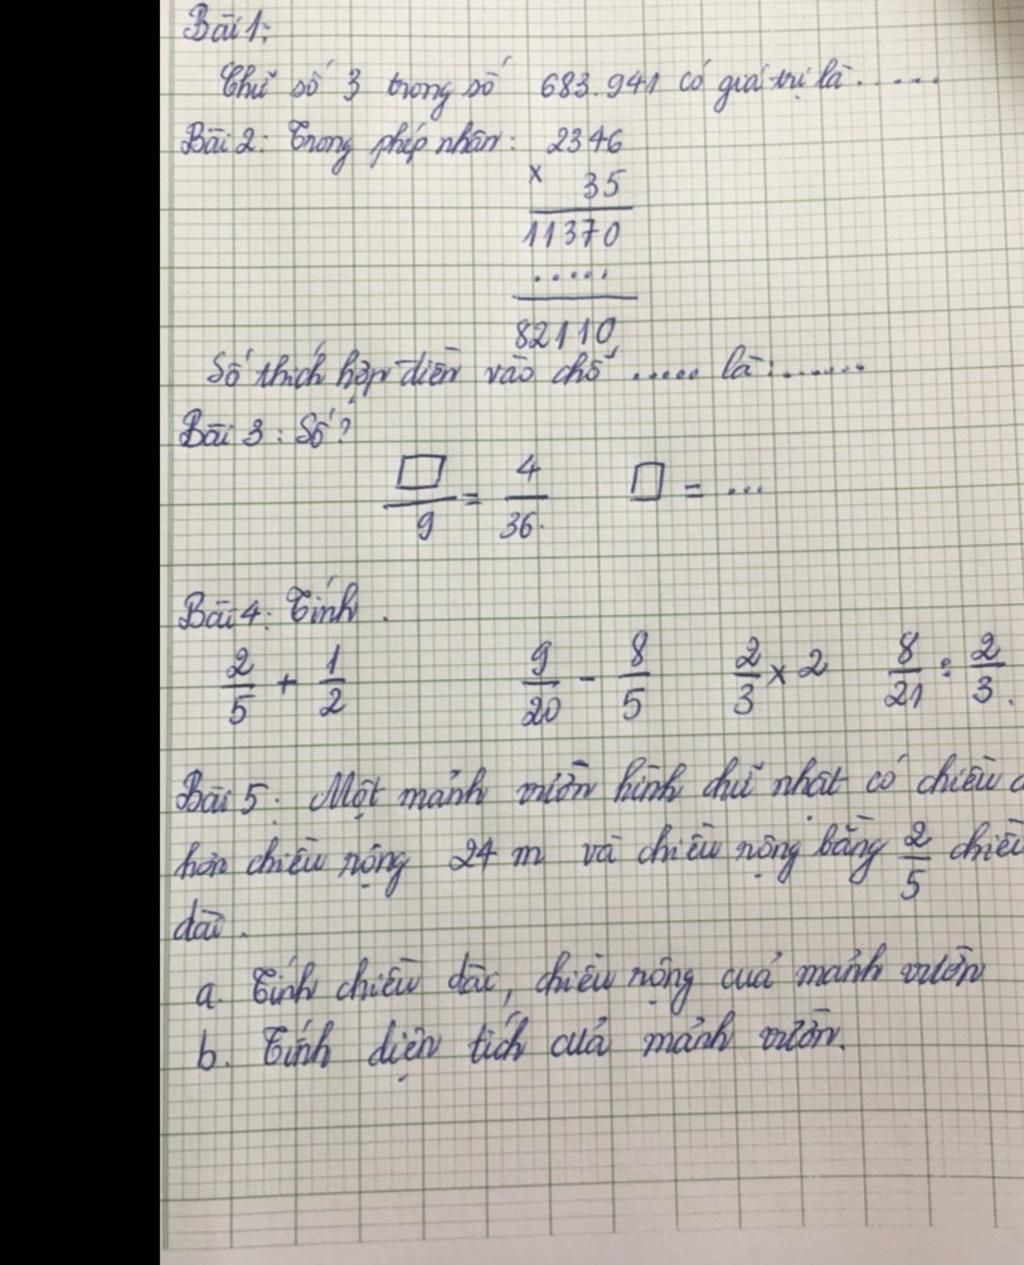 Bài 1:
Chữ số 3 trong số 683.941 có giá trị là.....
Bài 2: Trong phép nhân: 2346
x 35
11370
.....
82110
Số thích hợp điền vào chỗ ..... là:.......
Bài 3: Số?
□/9 = 4/36. □ = ...
Bài 4: Tính.
2/5 + 1/2 9/20 - 8/5 2/3 x 2 8/21 : 2/3.
Bài 5: Một mảnh vườn hình chữ nhật có chiều d
hơn chiều rộng 24 m và chiều rộng bằng 2/5 chiều
dài.
a. Tính chiều dài, chiều rộng của mảnh vườn
b. Tính diện tích của mảnh vườn.